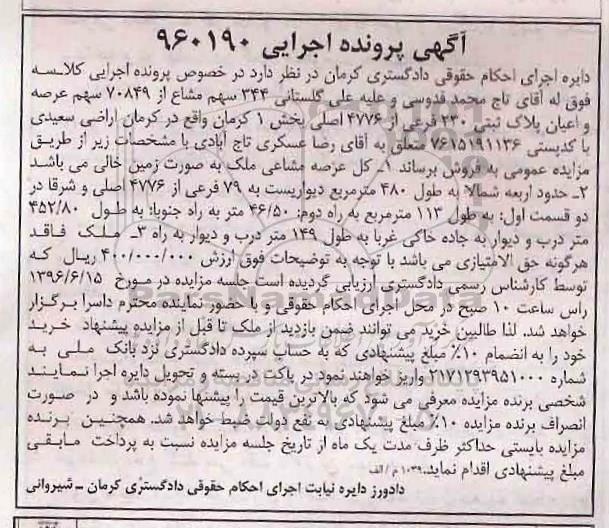 آگهی پرونده اجرایی ۹۶۰۱۹۰
دایره اجرای احکام حقوقی دادگستری کرمان در نظر دارد در خصوص پرونده اجرایی کلاسه
فوق له آقای تاج محمد قدوسی و علیه علی گلستانی ۳۴۴ سهم مشاع از ۷۰۸۴۹ سهم عرصه
و اعیان پلاک ثبتی ۲۳۰ فرعی از ۴۷۷۶ اصلی بخش ۱ کرمان واقع در کرمان اراضی سعیدی
با کدپستی ۷۶۱۵۱۹۱۱۳۶ متعلق به آقای رضا عسکری تاج آبادی با مشخصات زیر از طریق
مزایده عمومی به فروش برساند ۱ـ کل عرصه مشاعی ملک به صورت زمین خالی می باشد
۲ـ حدود اربعه شمالا به طول ۴۸۰ مترمربع دیواریست به ۷۹ فرعی از ۴۷۷۶ اصلی و شرقا در
دو قسمت اول: به طول ۱۱۳ مترمربع به راه دوم: ۴۶/۵۰ متر به راه جنوبا: به طول ۴۵۲/۸۰
متر درب و دیوار به جاده خاکی غربا به طول ۱۴۹ متر درب و دیوار به راه ۳ـ ملک فاقد
هرگونه حق الامتیازی می باشد با توجه به توضیحات فوق ارزش ۴۰۰/۰۰۰/۰۰۰ ریال که
توسط کارشناس رسمی دادگستری ارزیابی گردیده است جلسه مزایده در مورخ ۱۳۹۶/۶/۱۵
راس ساعت ۱۰ صبح در محل اجرای احکام حقوقی و با حضور نماینده محترم داسرا برگزار
خواهد شد. لذا طالبین خرید می توانند ضمن بازدید از ملک تا قبل از مزایده پیشنهاد خرید
خود را به انضمام ۱۰٪ مبلغ پیشنهادی که به حساب سپرده دادگستری نزد بانک ملی به
شماره ۲۱۷۱۲۹۳۹۵۱۰۰۰ واریز خواهند نمود در پاکت در بسته و تحویل دایره اجرا نمایند
شخصی برنده مزایده معرفی می شود که بالاترین قیمت را پیشنها نموده باشد و در صورت
انصراف برنده مزایده ۱۰٪ مبلغ پیشنهادی به نفع دولت ضبط خواهد شد. همچنین برنده
مزایده بایستی حداکثر ظرف مدت یک ماه از تاریخ جلسه مزایده نسبت به پرداخت مابقی
مبلغ پیشنهادی اقدام نماید.۱۰۳۹م/الف
دادورز دایره نیابت اجرای احکام حقوقی دادگستری کرمان ـ شیروانی